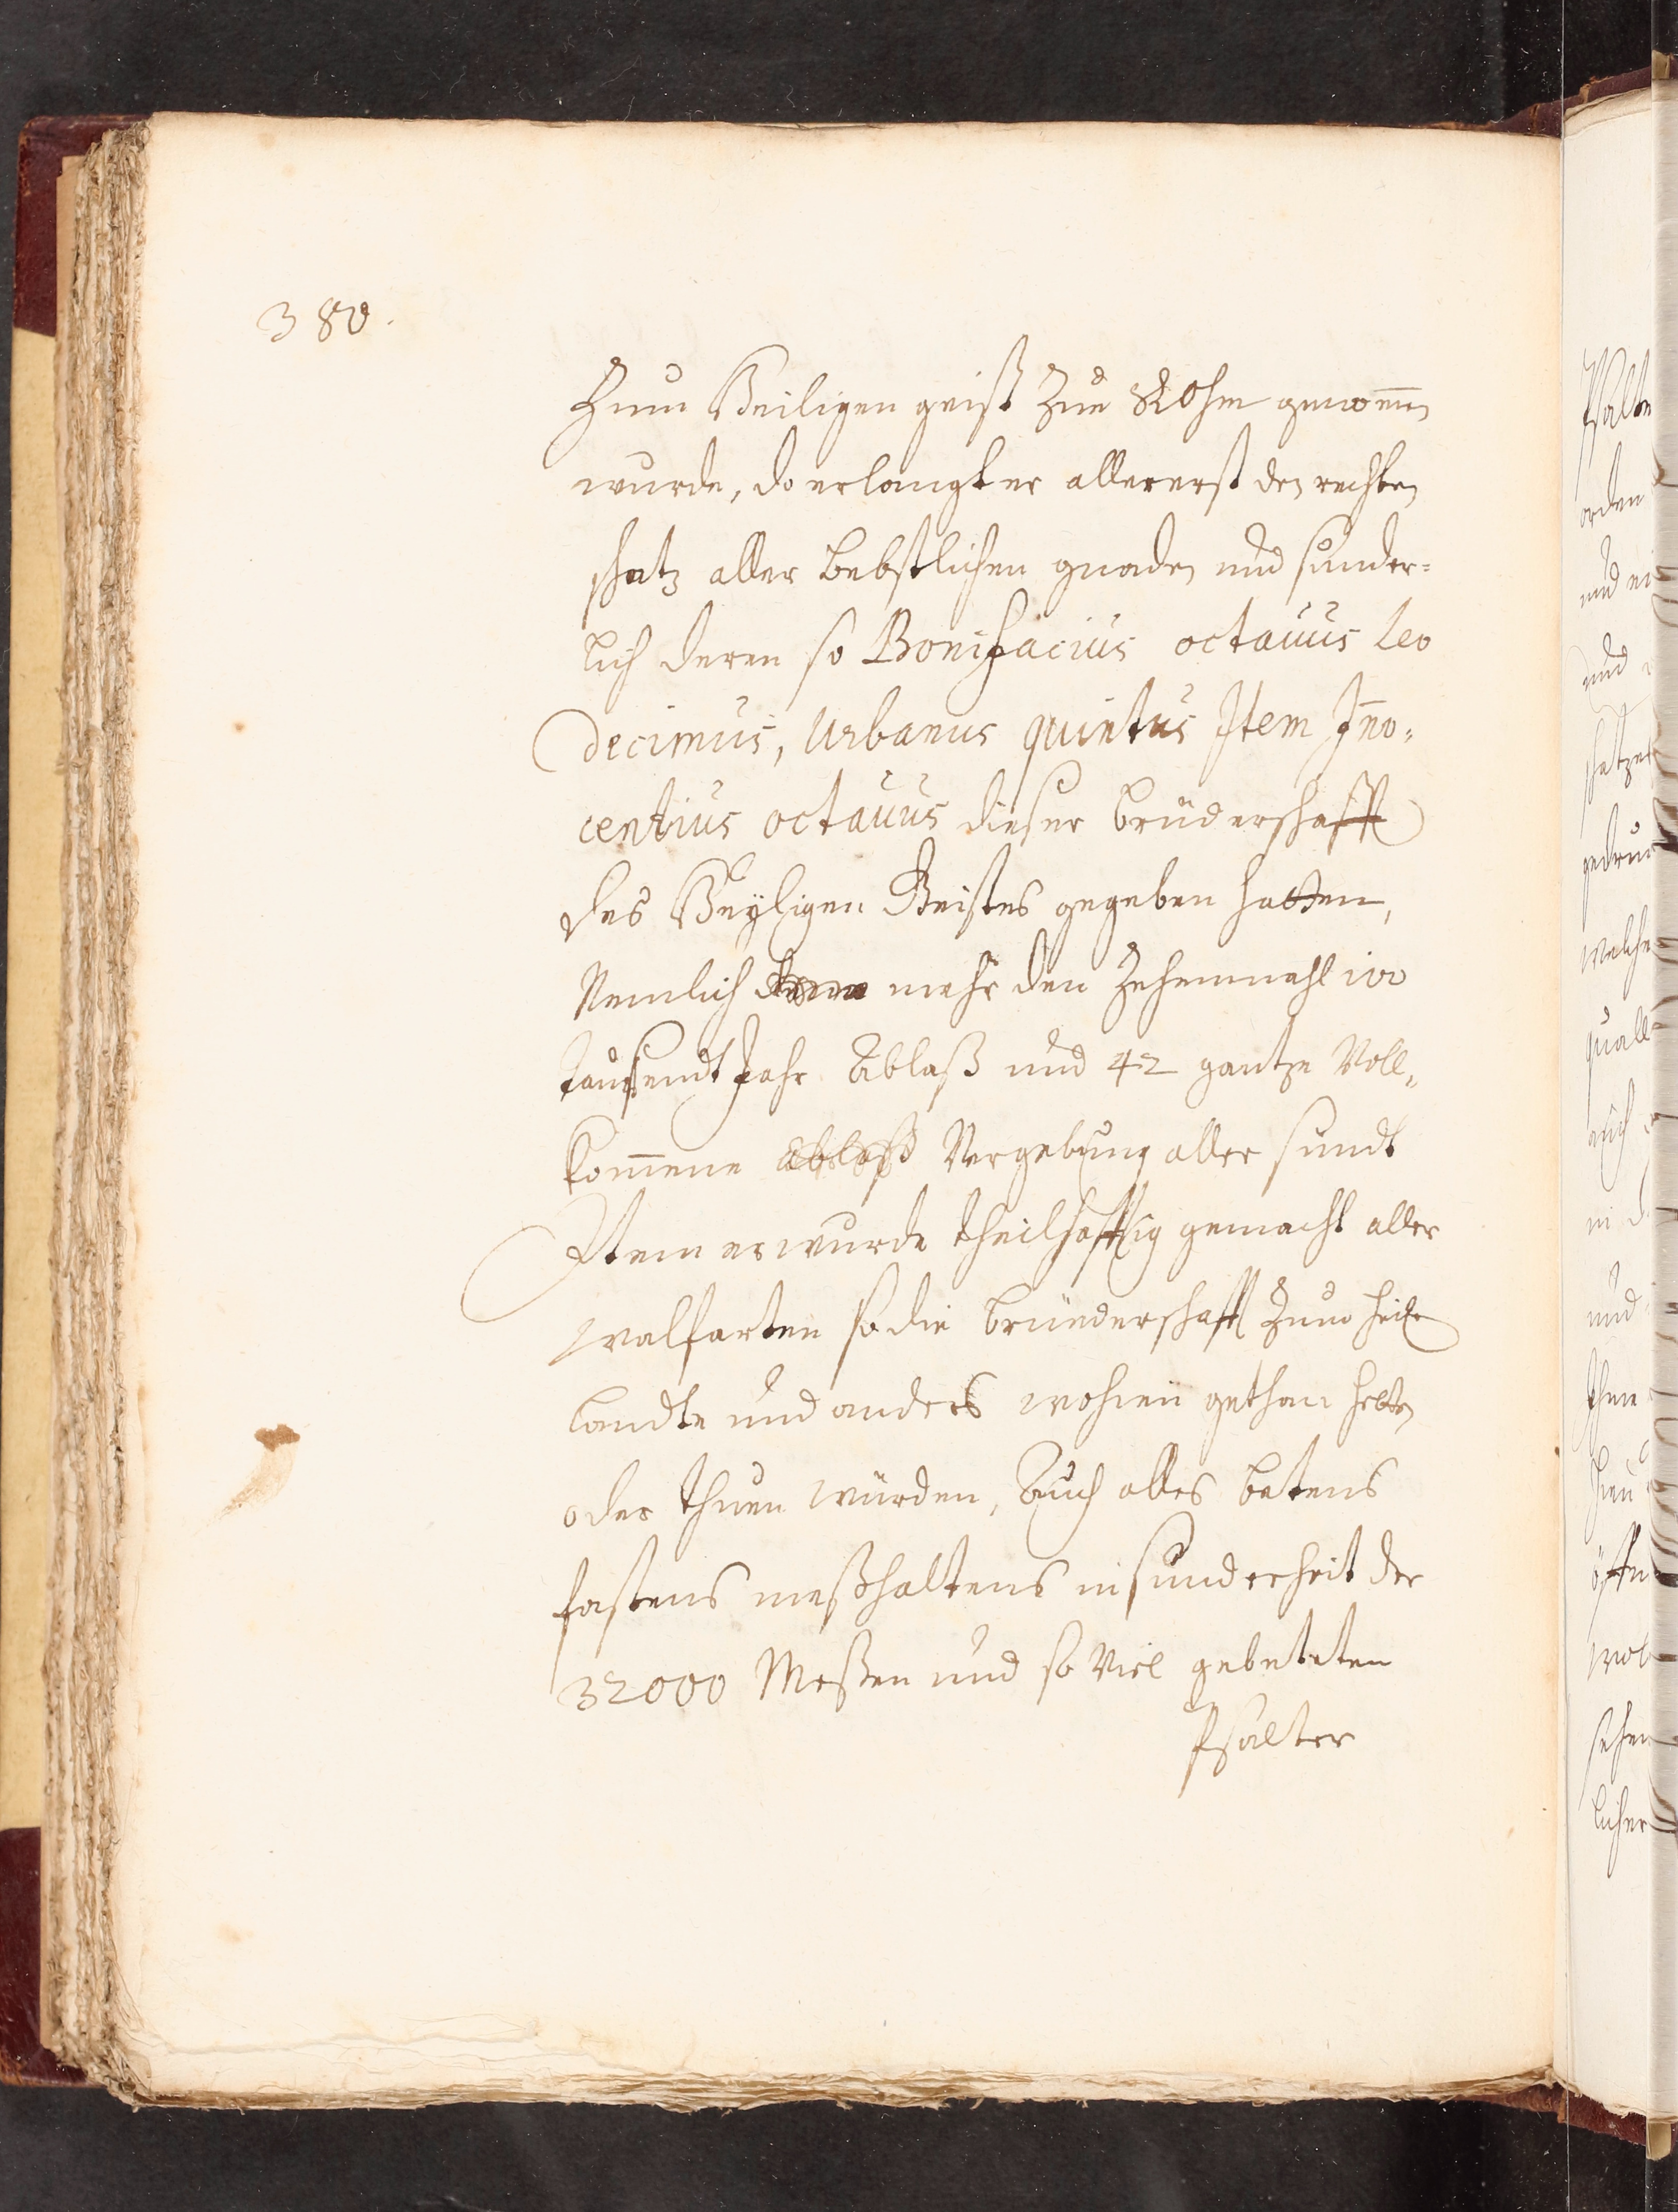 380.
Zum Heiligen geist Zue Rohm genommen
wurde, do erlangt er allererst den rechten
schatz aller Bebstlichen gnaden und sunder=
lich deren so Bonifacius octavus Leo
decimus, Urbanus quintus Item Iño=
centius octavus dieser bruderschafft
des Heyligen Geistes gegeben hatten,
Nemlich mehr den Zehenmahl 100
tausendt Jahr Ablaß und 42 gantze Voll=
kom̃ene ablaß Vergebung aller sundt
Item er wurde theilhafftig gemacht aller
walfarten so die brüederschafft Zum heil:
Landte und anders wohin gethan hetten
oder thuen würden, Auch alles betens
fastens meßhaltens insunderheit der
32000 Meßen und so Viel gebeteten
Psalter
Psalte
orden
und
und
schatzes
welche
auch
in
und
öffn
wol
sehen
licher